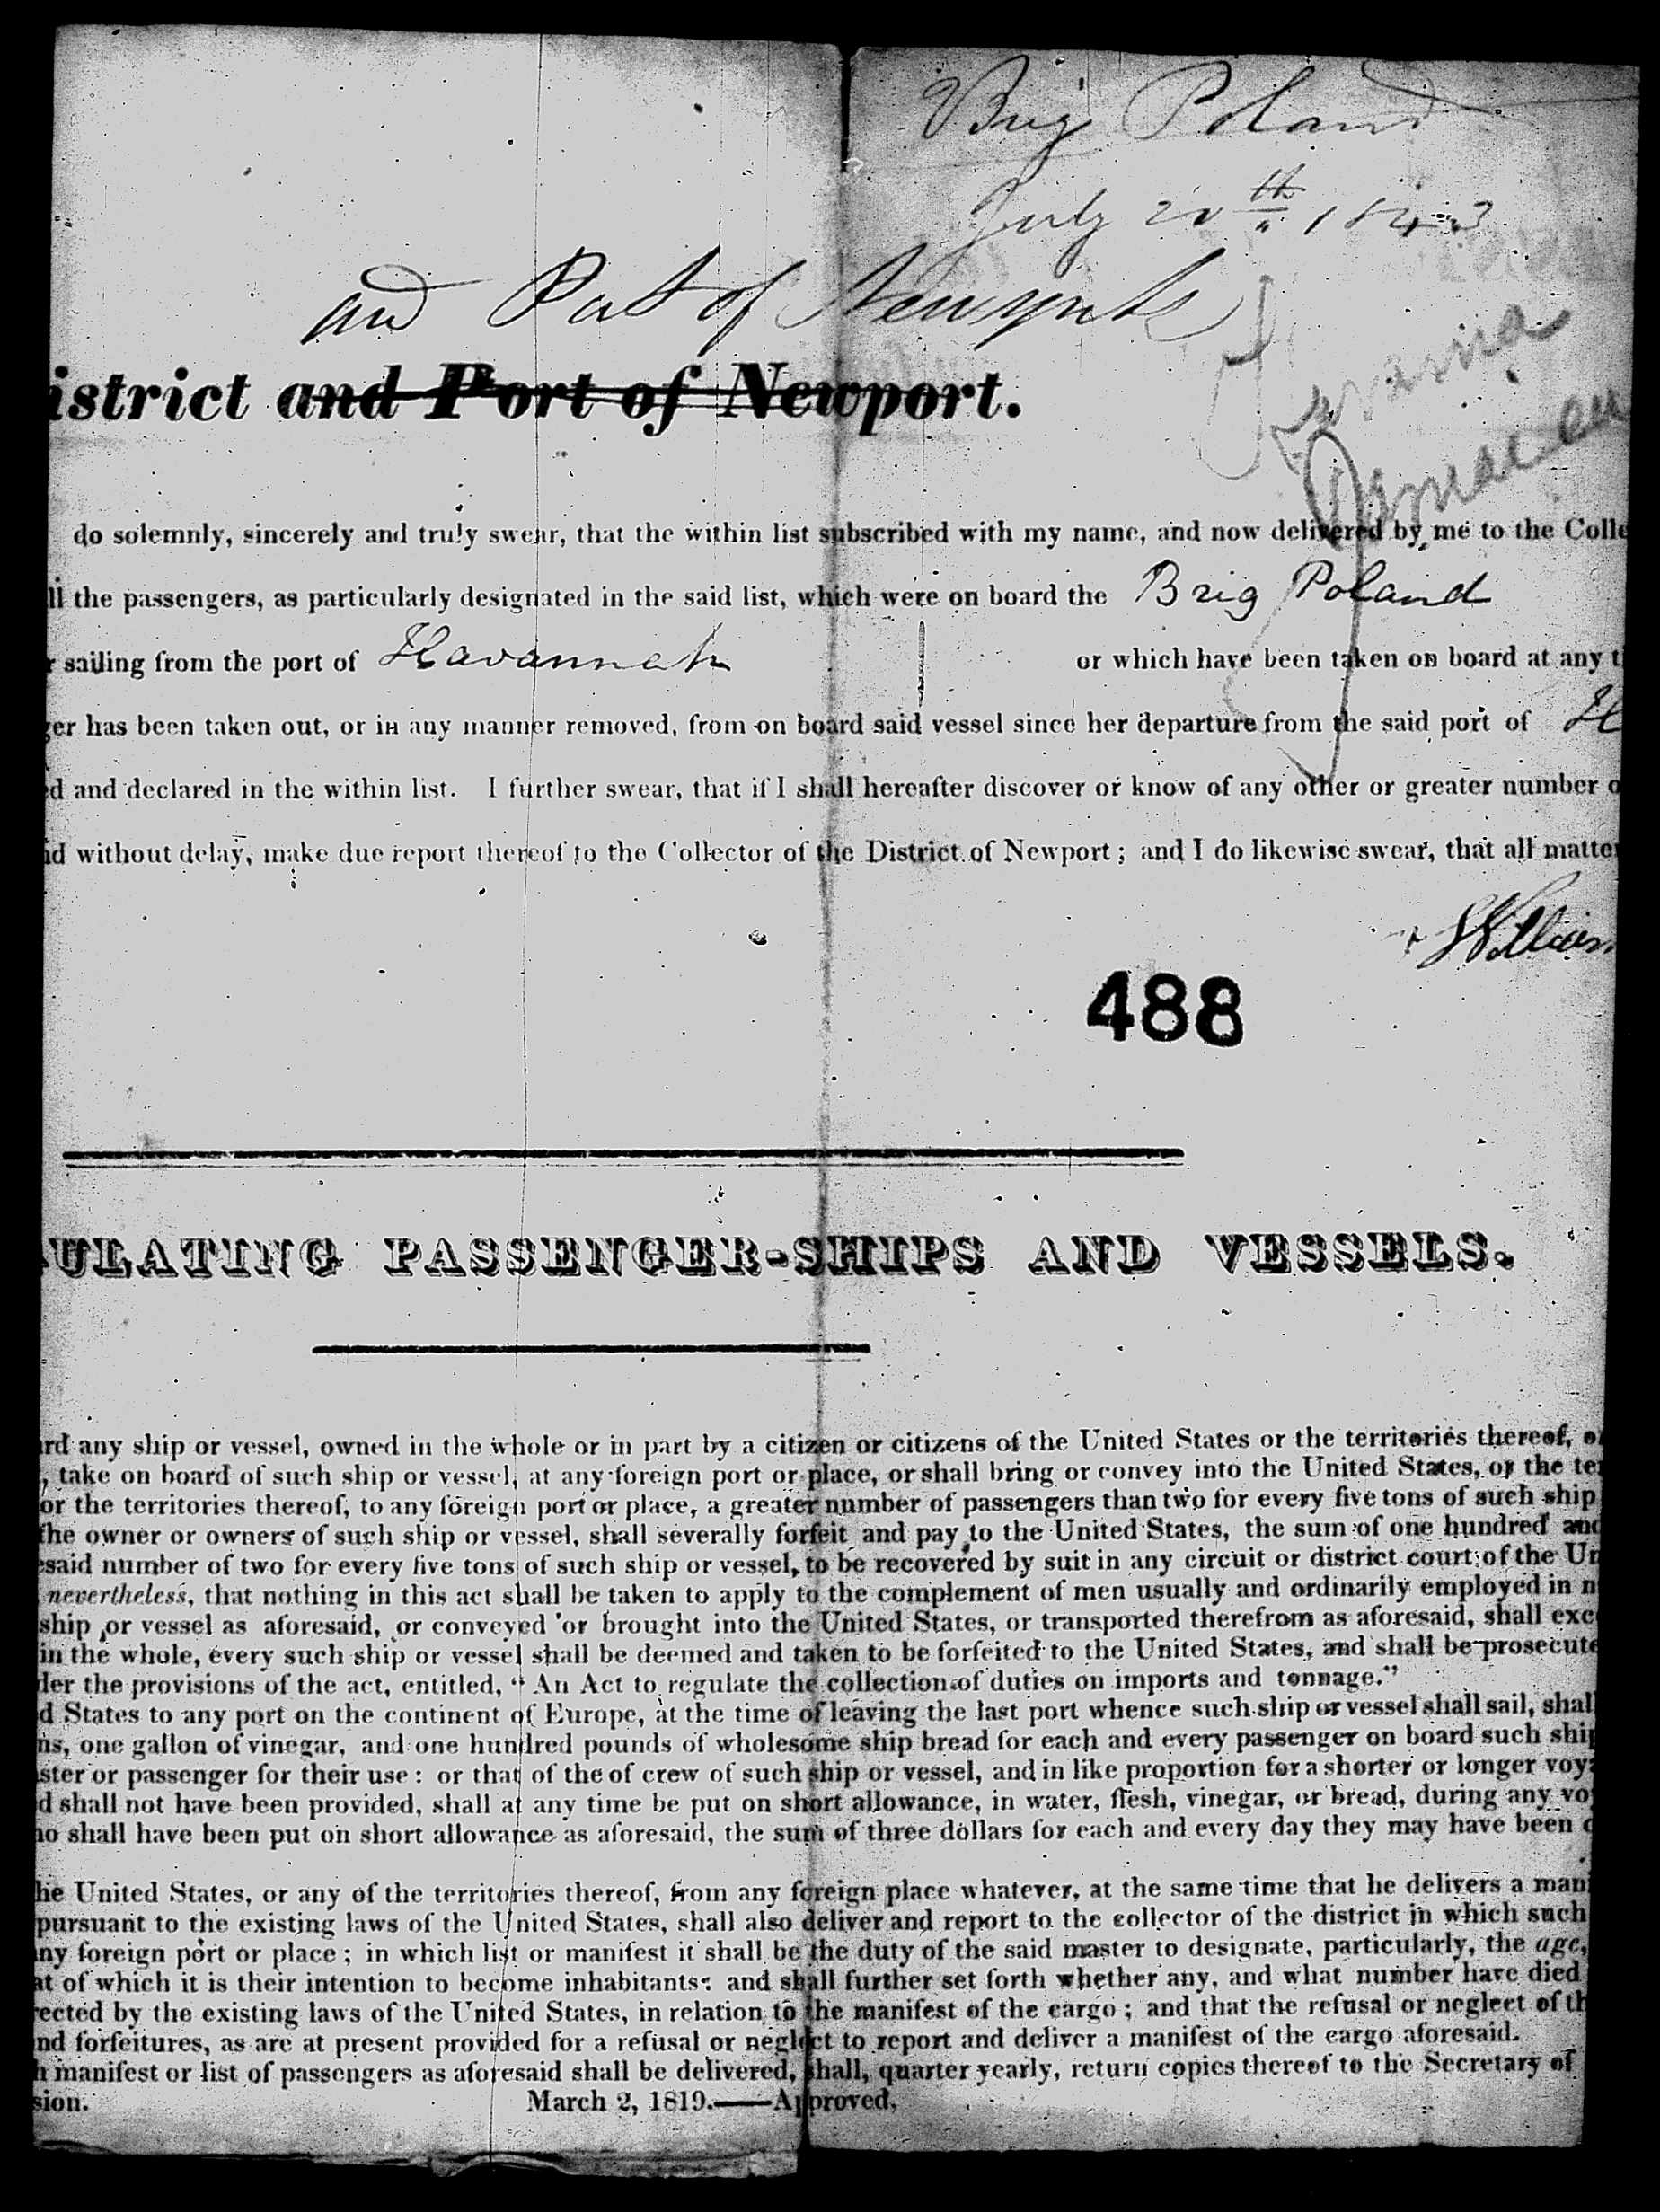 Brig Poland
July 20th 1843
and Port of Newyork
istrict and Port of Newport.
do solemnly, sincerely and truly swear, that the within list subscribed with my name, and now delivered by me to the Colle
ll the passengers, as particularly designated in the said list, which were on board the Brig Poland
r sailing from the port of Havannah or which have been taken on board at any ti
ger has been taken out, or in any manner removed, from on board said vessel since her departure from the said port of H
ed and declared in the within list. I further swear, that if I shall hereafter discover or know of any other or greater number o
nd without delay, make due report thereof to the Collector of the District of Newport; and I do likewise swear, that all matter
William
488
ULATING PASSENGER-SHIPS AND VESSELS.
rd any ship or vessel, owned in the whole or in part by a citizen or citizens of the United States or the territories thereof, or
, take on board of such ship or vessel, at any foreign port or place, or shall bring or convey into the United States, or the ter
or the territories thereof, to any foreign port or place, a greater number of passengers than two for every five tons of such ship
the owner or owners of such ship or vessel, shall severally forfeit and pay to the United States, the sum of one hundred and
esaid number of two for every five tons of such ship or vessel, to be recovered by suit in any circuit or district court of the Un
nevertheless, that nothing in this act shall be taken to apply to the complement of men usually and ordinarily employed in n
ship or vessel as aforesaid, or conveyed or brought into the United States, or transported therefrom as aforesaid, shall exce
in the whole, every such ship or vessel shall be deemed and taken to be forfeited to the United States, and shall be prosecute
der the provisions of the act, entitled, "An Act to regulate the collection of duties on imports and tonnage."
d States to any port on the continent of Europe, at the time of leaving the last port whence such ship or vessel shall sail, shall
ns, one gallon of vinegar, and one hundred pounds of wholesome ship bread for each and every passenger on board such ship
ster or passenger for their use: or that of the of crew of such ship or vessel, and in like proportion for a shorter or longer voya
d shall not have been provided, shall at any time be put on short allowance, in water, flesh, vinegar, or bread, during any vo
ho shall have been put on short allowance as aforesaid, the sum of three dollars for each and every day they may have been o
he United States, or any of the territories thereof, from any foreign place whatever, at the same time that he delivers a mani
pursuant to the existing laws of the United States, shall also deliver and report to the collector of the district in which such
ny foreign port or place; in which list or manifest it shall be the duty of the said master to designate, particularly, the age,
at of which it is their intention to become inhabitants: and shall further set forth whether any, and what number have died
rected by the existing laws of the United States, in relation to the manifest of the cargo; and that the refusal or neglect of th
nd forfeitures, as are at present provided for a refusal or neglect to report and deliver a manifest of the cargo aforesaid.
h manifest or list of passengers as aforesaid shall be delivered, shall, quarter yearly, return copies thereof to the Secretary of
sion. March 2, 1819.——Approved,